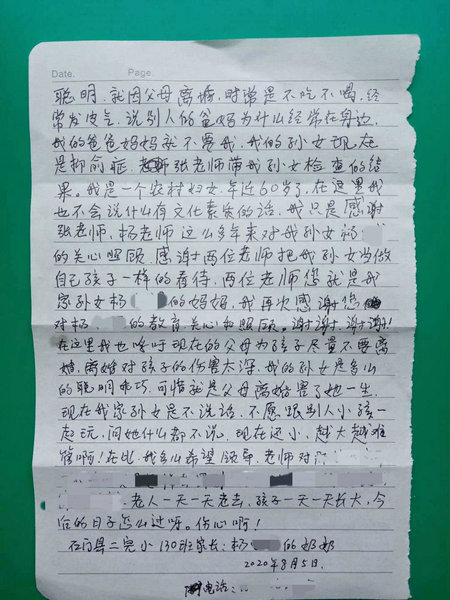 Date. Page.
聪明,就因父母离婚,时常是不吃不喝,经
常发皮气,说别人的爸妈为什么经常在身边,
我的爸爸妈妈就不要我,我的孙女现在
是抑俞症,张老师带我孙女检查的结
果。我是一个农村妇女,年近60岁了,在这里我
也不会说什么有文化素质的话,我只是感谢
张老师,杨老师这么多年来对我孙女杨
的关心照顾,感谢两位老师把我孙女当做
自己孩子一样的看待,两位老师您就是我
家孙女杨 的妈妈,我再次感谢您
对杨 的教育关心和照顾。谢谢,谢谢!
在这里我也唤吁现在的父母为孩子尽量不要离
婚,离婚对孩子的伤害太深,我的孙女是多么
的聪明乖巧,可惜就是父母离婚害了她一生,
现在我家孙女是不说话,不愿跟别人小孩一
起玩,问她什么都不说,现在还小,越大越难
管啊!在此,我多么希望领导,老师对
老人一天一天老去,孩子一天一天长大,今
后的日子怎么过呀。伤心啊!
石门县二完小130班家长:杨 的奶奶
2020年8月5日.
电话: